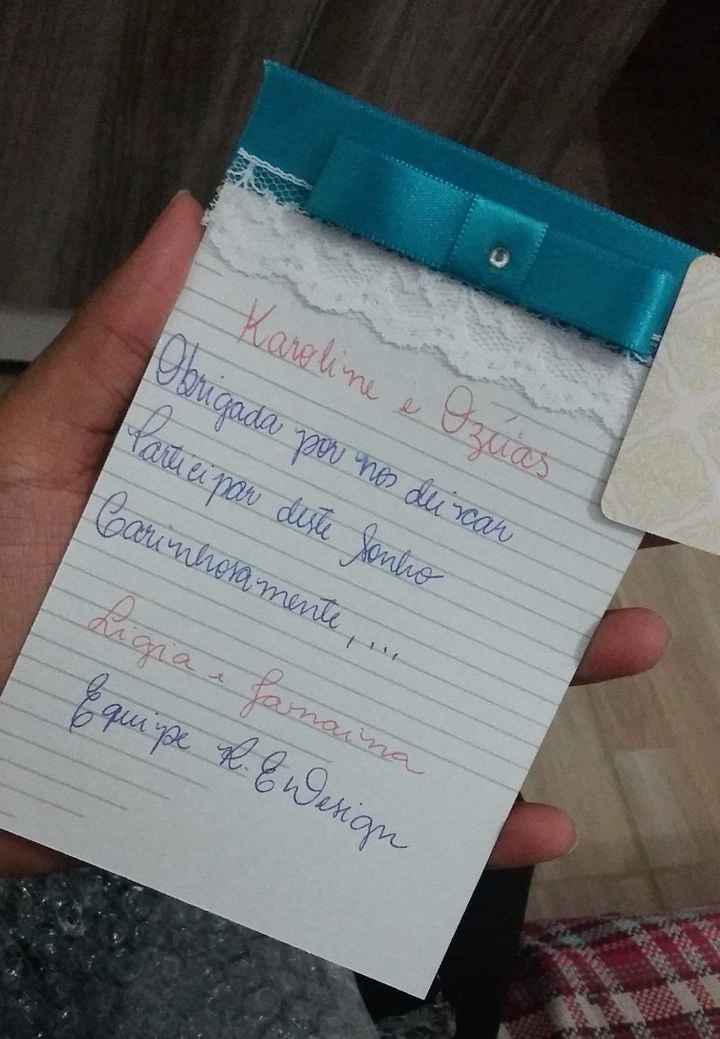 Karoline e Ozúas
Obrigada por nos deixar
Participar deste Sonho
Carinhosamente, ...
Ligia e Janaina
Equipe R. E Design